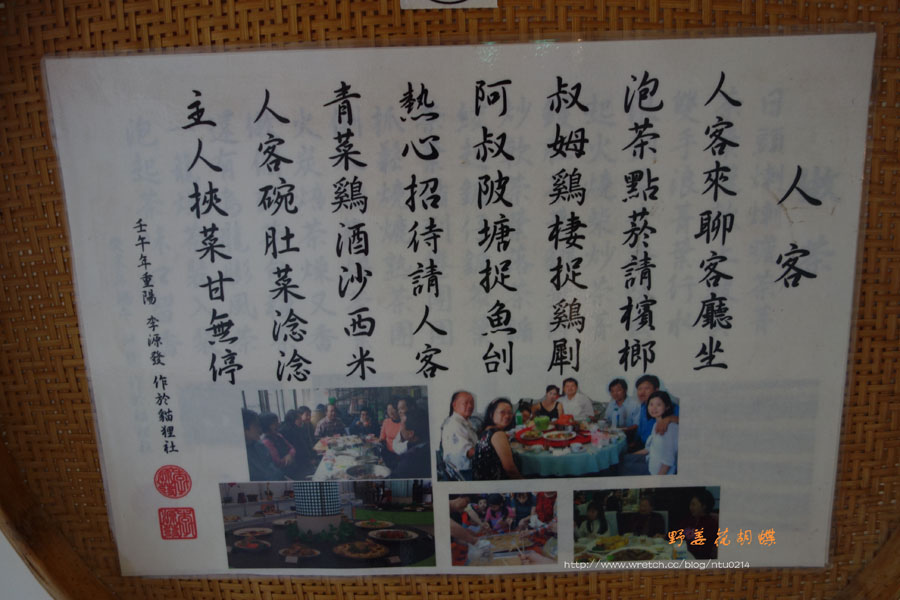 人客
人客來聊客廳坐
泡茶點菸請檳榔
叔姆鷄棲捉鷄劏
阿叔陂塘捉魚刣
熱心招待請人客
青菜鷄酒沙西米
人客碗肚菜淰淰
主人挾菜甘無停
壬午年重陽 李源發 作於貓狸社
野薑花胡蝶
http://www.wretch.cc/blog/ntu0214